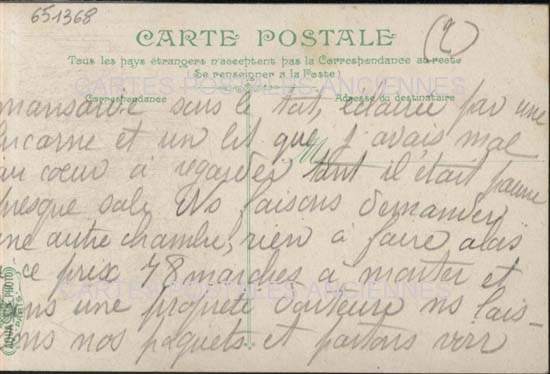 651368
(2)
CARTE POSTALE
Tous les pays étrangers n'acceptent pas la Correspondance au recto
(Se renseigner à la Poste)
CARTES POSTALES ANCIENNES
Correspondance
Adresse du destinataire
mansarde sous le toit, éclairée par une
lucarne et un lit que j'avais mal
au coeur à regarder tant il était jaune
presque sale Ns faisons demander
une autre chambre, rien à faire alors
ce prix 48 marches à monter et
dans une propreté douteuse ns lais-
sons nos paquets et partons voir
CARTES POSTALES ANCIENNES
AQUA PHOTO